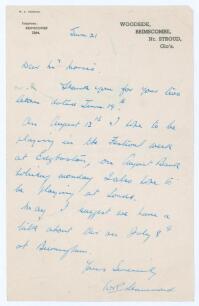 WOODSIDE,
BRIMSCOMBE,
Nr. STROUD,
Glo's.
June 21
Dear Mr Morris
Thank you for your two
letters dated June 19th.
On August 13th I like to be
playing in the Festival week
at Edgbaston, on August Bank
holiday monday I also like to
be playing at Lords.
May I suggest we have a
talk about this on July 8th
at Birmingham.
Yours Sincerely